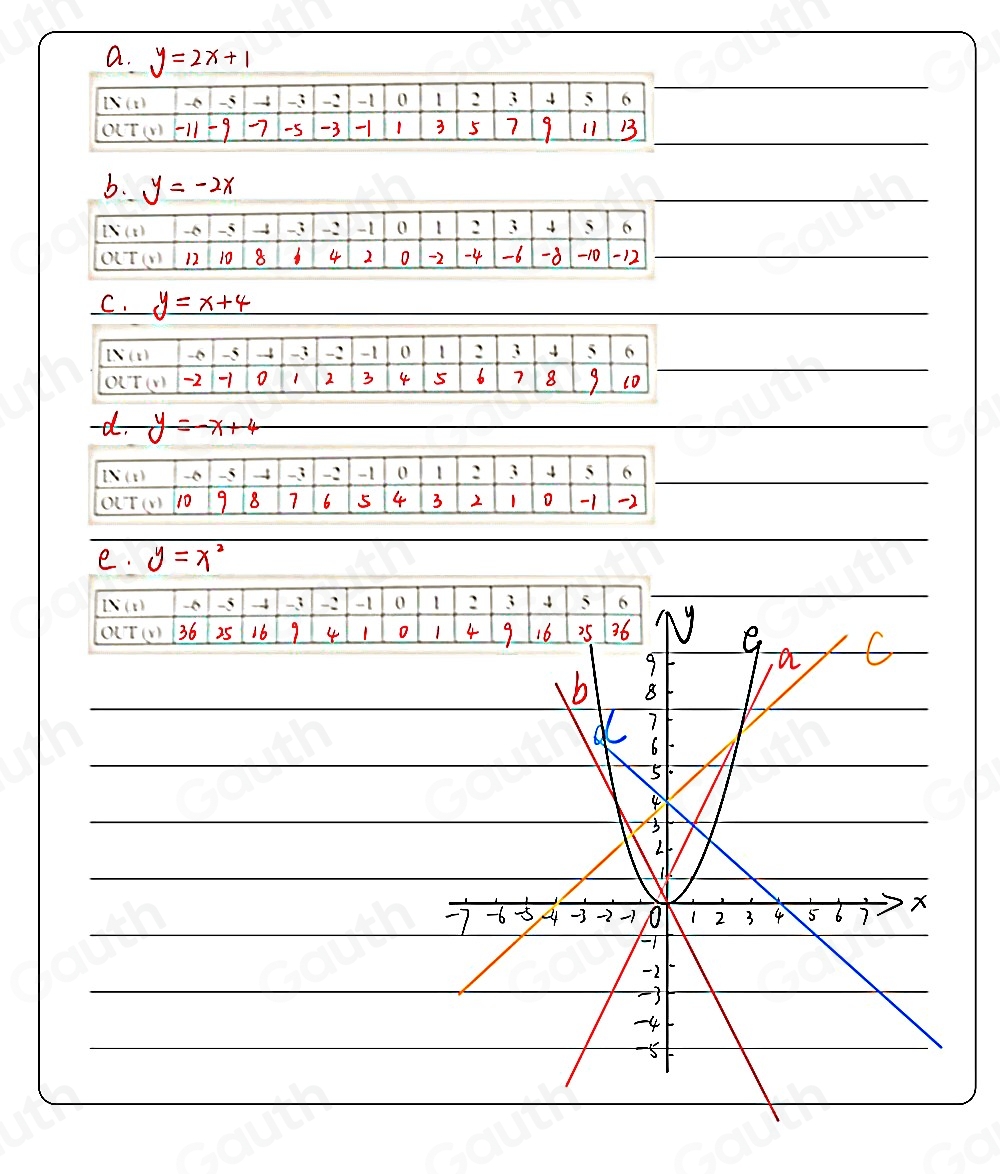 a. y=2x+1
IN (x) -6 -5 -4 -3 -2 -1 0 1 2 3 4 5 6
OUT (y) -11 -9 -7 -5 -3 -1 1 3 5 7 9 11 13
b. y = -2x
IN (x) -6 -5 -4 -3 -2 -1 0 1 2 3 4 5 6
OUT (y) 12 10 8 6 4 2 0 -2 -4 -6 -8 -10 -12
c. y = x+4
IN (x) -6 -5 -4 -3 -2 -1 0 1 2 3 4 5 6
OUT (y) -2 -1 0 1 2 3 4 5 6 7 8 9 10
d. y = -x+4
IN (x) -6 -5 -4 -3 -2 -1 0 1 2 3 4 5 6
OUT (y) 10 9 8 7 6 5 4 3 2 1 0 -1 -2
e. y = x²
IN (x) -6 -5 -4 -3 -2 -1 0 1 2 3 4 5 6
OUT (y) 36 25 16 9 4 1 0 1 4 9 16 25 36
y
e
a
c
b
d
9
8
7
6
5
4
3
2
1
-7 -6 -5 -4 -3 -2 -1 0 1 2 3 4 5 6 7 x
-1
-2
-3
-4
-5
Gauth